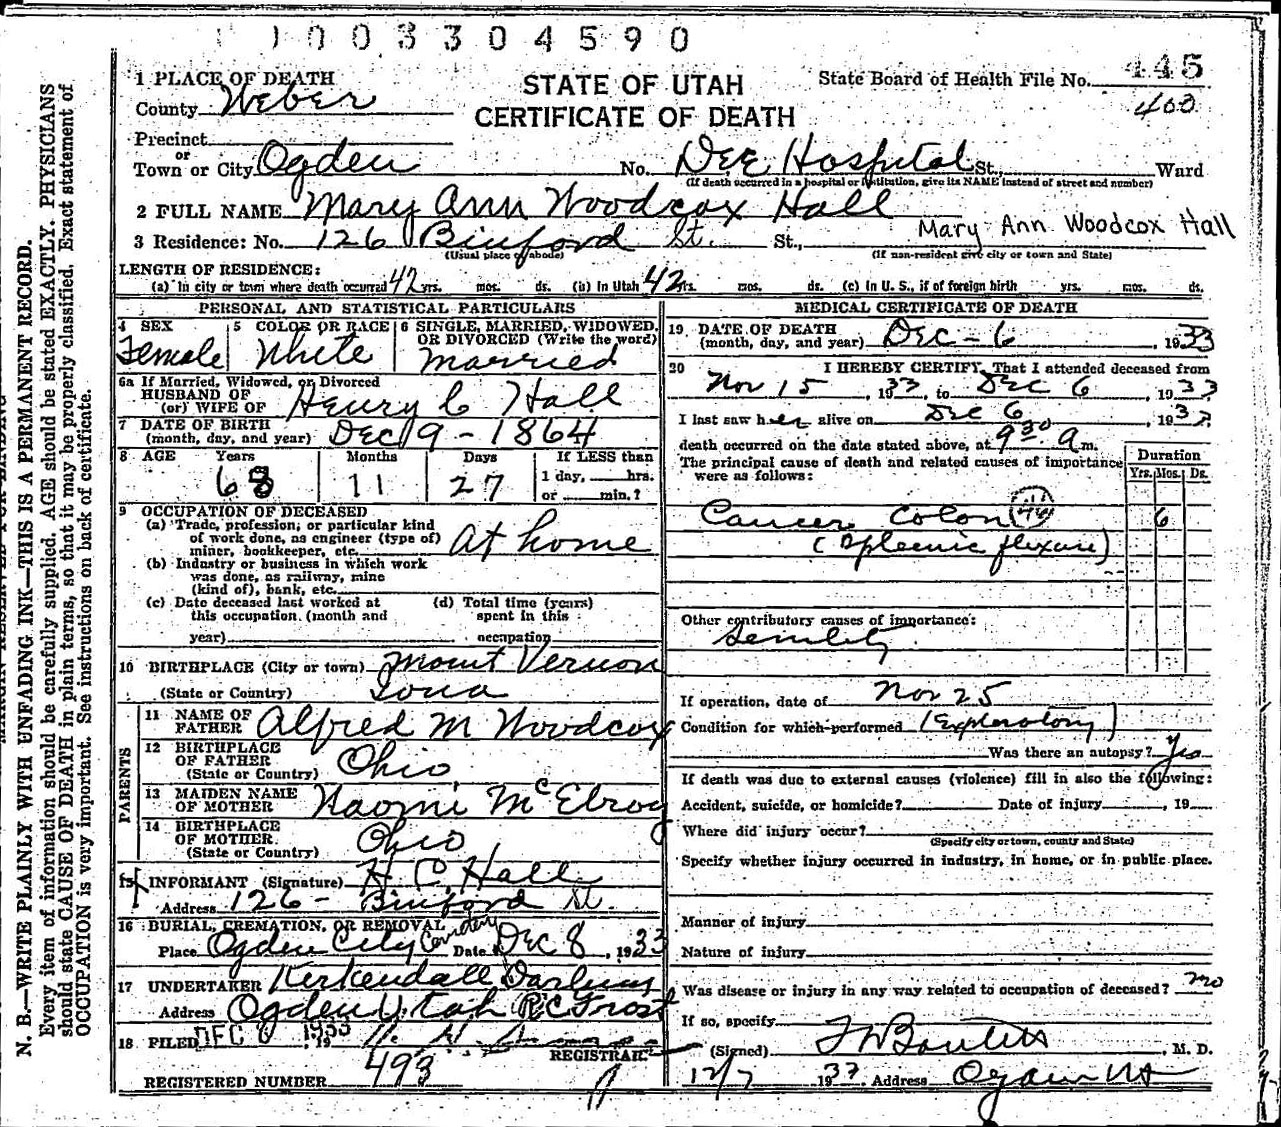 1003304590
1 PLACE OF DEATH
County Weber
STATE OF UTAH
CERTIFICATE OF DEATH
State Board of Health File No. 445
400
Precinct
or
Town or City Ogden No. Dee Hospital St., Ward
(If death occurred in a hospital or institution, give its NAME instead of street and number)
2 FULL NAME Mary Ann Woodcox Hall
Mary Ann Woodcox Hall
3 Residence: No. 126 Binford St. St.,
(Usual place of abode) (If non-resident give city or town and State)
LENGTH OF RESIDENCE:
(a) In city or town where death occurred 42 yrs. mos. ds. (b) In Utah 42 yrs. mos. ds. (c) in U. S., if of foreign birth yrs. mos. ds.
PERSONAL AND STATISTICAL PARTICULARS
4 SEX 5 COLOR OR RACE 6 SINGLE, MARRIED, WIDOWED, OR DIVORCED (Write the word)
Female White Married
6a If Married, Widowed, or Divorced
HUSBAND OF
(or) WIFE OF Henry C Hall
7 DATE OF BIRTH
(month, day, and year) Dec 9 - 1864
8 AGE Years Months Days If LESS than
1 day, hrs.
or min.?
68 11 27
9 OCCUPATION OF DECEASED
(a) Trade, profession, or particular kind
of work done, as engineer (type of)
miner, bookkeeper, etc. At home
(b) Industry or business in which work
was done, as railway, mine
(kind of), bank, etc.
(c) Date deceased last worked at
this occupation. (month and
year)
(d) Total time (years)
spent in this
occupation
10 BIRTHPLACE (City or town) Mount Vernon
(State or Country) Iowa
PARENTS
11 NAME OF
FATHER Alfred M Woodcox
12 BIRTHPLACE
OF FATHER
(State or Country) Ohio
13 MAIDEN NAME
OF MOTHER Naomi McElroy
14 BIRTHPLACE
OF MOTHER
(State or Country) Ohio
15 INFORMANT (Signature) H C Hall
Address 126 - Binford St.
16 BURIAL, CREMATION, OR REMOVAL
Place Ogden City Cemetery Date Dec 8, 1933
17 UNDERTAKER Kirkendall Darling
Address Ogden Utah R C Frost
18 FILED DEC 1933
REGISTRAR
REGISTERED NUMBER 493
MEDICAL CERTIFICATE OF DEATH
19 DATE OF DEATH
(month, day, and year) Dec - 6, 1933
20 I HEREBY CERTIFY, That I attended deceased from
Nov 15, 1933, to Dec 6, 1933
I last saw her alive on Dec 6, 1933
death occurred on the date stated above, at 9 30 a m.
The principal cause of death and related causes of importance
were as follows:
Duration
Yrs. Mos. Ds.
Cancer Colon 46 6
(Spleenic flexure)
Other contributory causes of importance:
Senility
If operation, date of Nov 25
Condition for which performed (Exploratory)
Was there an autopsy? Yes
If death was due to external causes (violence) fill in also the following:
Accident, suicide, or homicide? Date of injury, 19
Where did injury occur?
(Specify city or town, county and State)
Specify whether injury occurred in industry, in home, or in public place.
Manner of injury
Nature of injury
Was disease or injury in any way related to occupation of deceased? no
If so, specify
(Signed), M. D.
12/7 1933 Address Ogden Ut
N. B.—WRITE PLAINLY WITH UNFADING INK—THIS IS A PERMANENT RECORD.
Every item of information should be carefully supplied. AGE should be stated EXACTLY. PHYSICIANS
should state CAUSE OF DEATH in plain terms, so that it may be properly classified. Exact statement of
OCCUPATION is very important. See instructions on back of certificate.